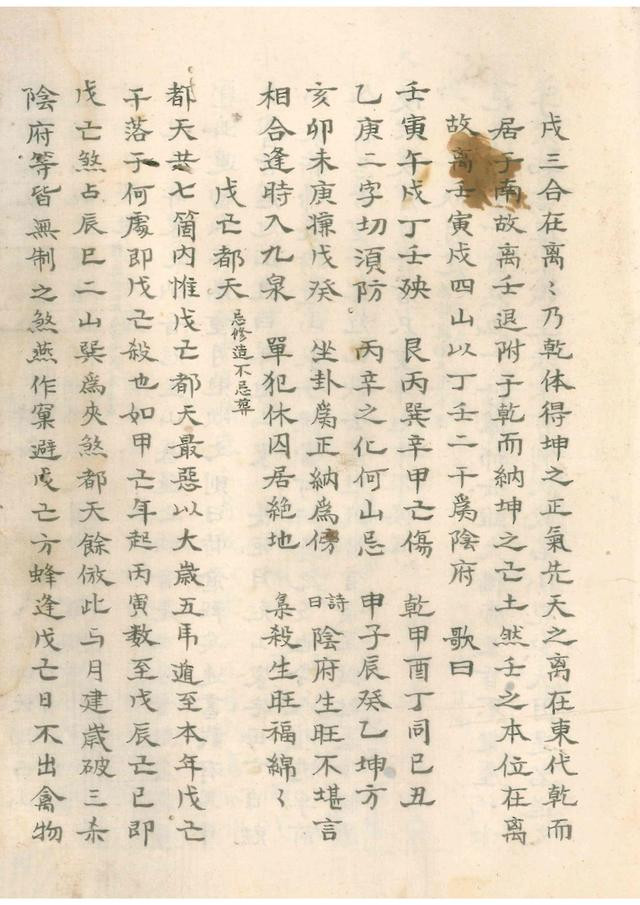 戌三合在离〻乃乾体得坤之正氣先天之离在東代乾而
居于南故离壬退附于乾而納坤之己土然壬之本位在离
故离壬寅戍四山以丁壬二干爲陰府 歌曰
壬寅午戌丁壬殃 艮丙巽辛甲亡傷 乾甲酉丁同巳丑
乙庚二字切湏防 丙辛之化何山忌 申子辰癸乙坤方
亥卯未庚㢘戊癸 坐卦爲正納爲傍 詩曰陰府生旺不堪言
相合逢時入九泉 單犯休囚居絶地 梟殺生旺福綿〻
戊亡都天 忌修造不忌葬
都天共七箇内惟戊亡都天最惡以大歲五乕遁至本年戊亡
干落于何處即戊亡殺也如甲亡年起丙寅数至戊辰亡巳即
戊亡煞占辰巳二山巽爲夾煞都天餘倣此与月建歲破三杀
陰府等皆無制之煞燕作窠避戊亡方蜂逢戊亡日不出禽物